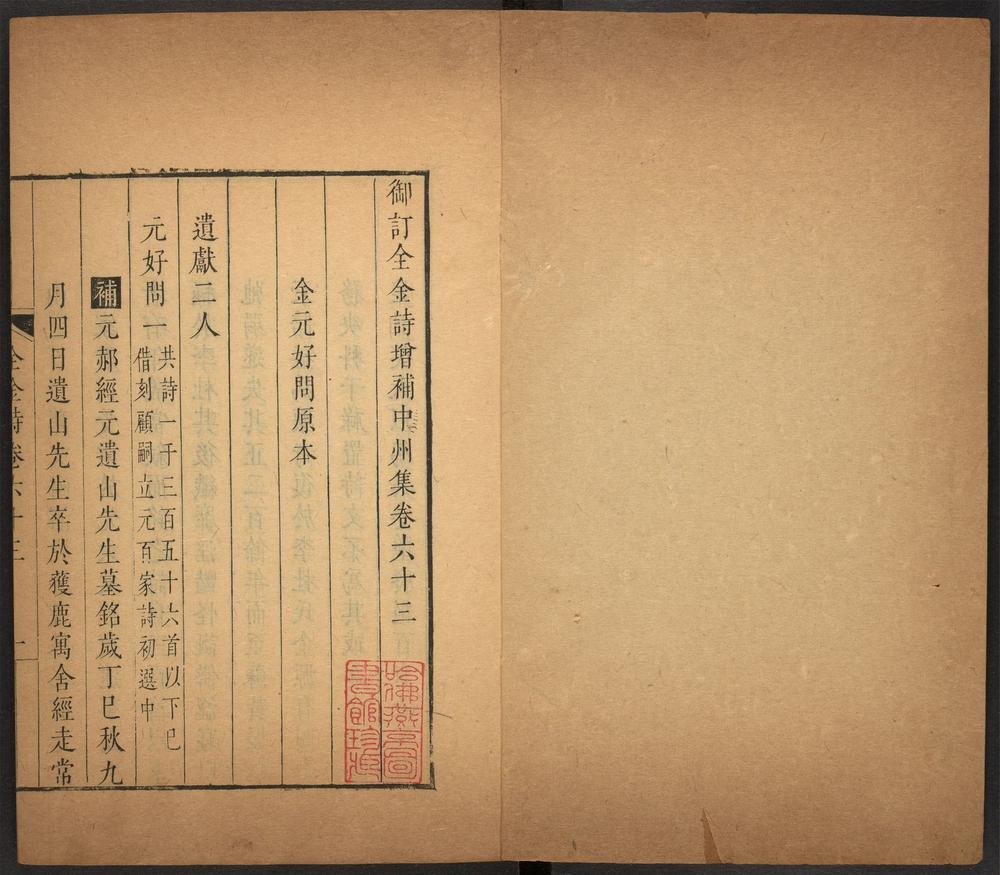 御訂全金詩增補中州集卷六十三
金元好問原本
遺獻二人
元好問一
共詩一千三百五十六首以下已
借刻顧嗣立元百家詩初選中
補元郝經元遺山先生墓銘歲丁巳秋九
月四日遺山先生卒於獲鹿寓舍經走常
全金詩卷六十三
一
哈佛燕京圖
書館珍藏